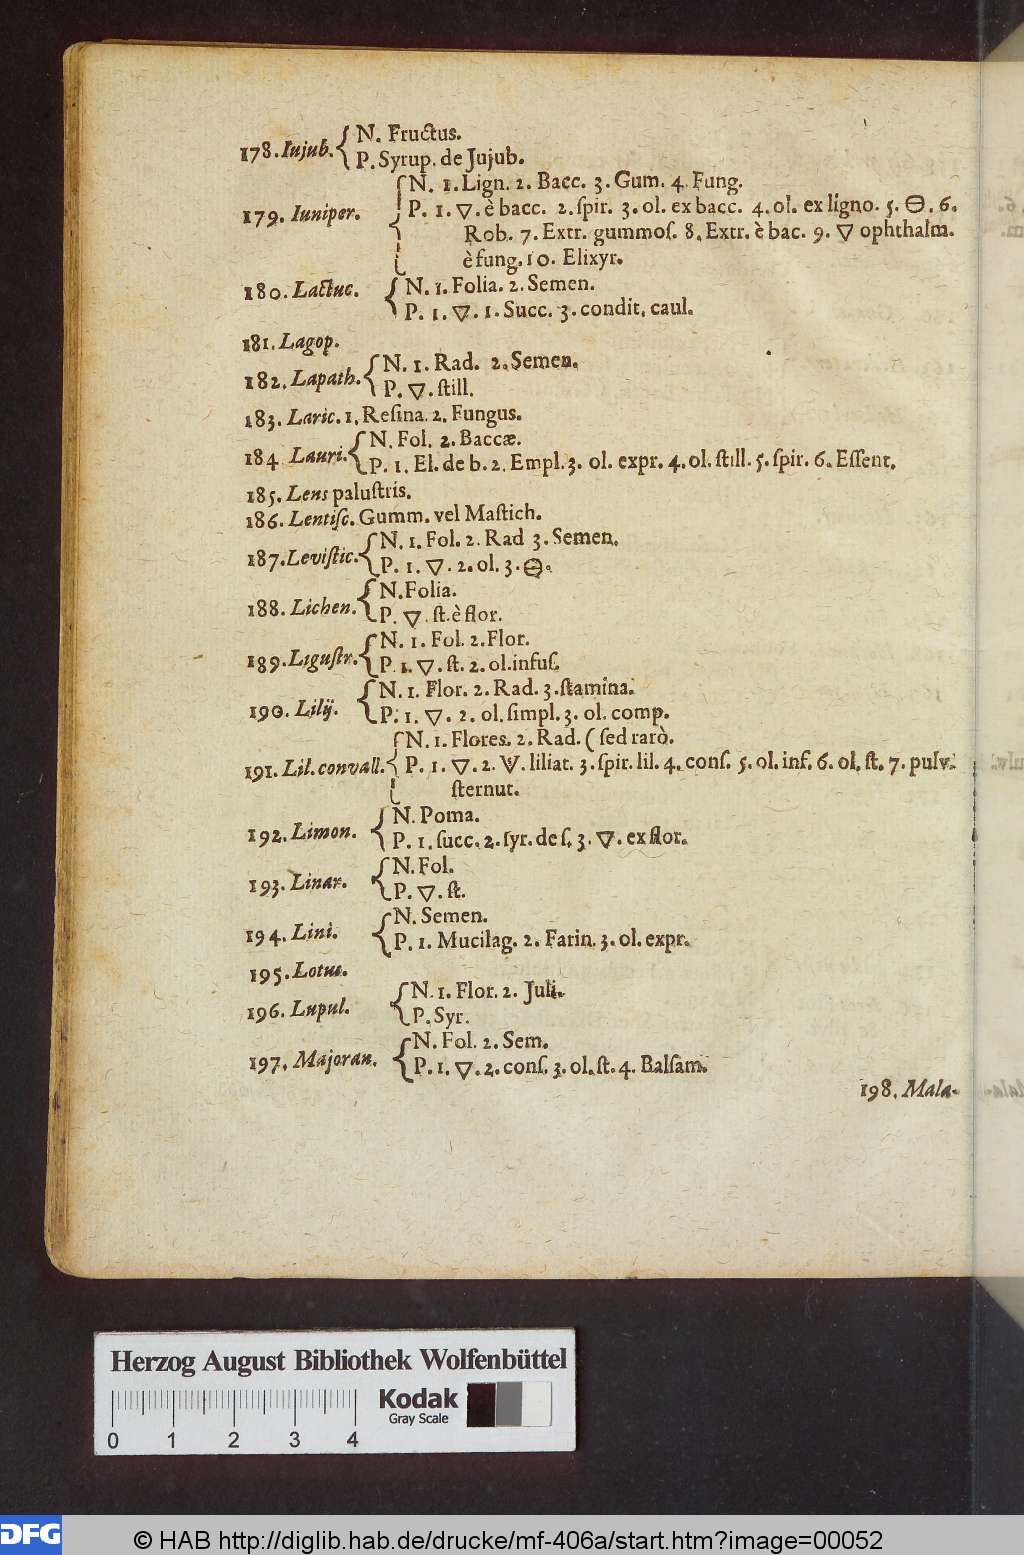 178. Iujub. { N. Fructus.
P. Syrup. de Jujub.
179. Iuniper. { N. 1. Lign. 2. Bacc. 3. Gum. 4. Fung.
P. 1. 🜄. è bacc. 2. ſpir. 3. ol. ex bacc. 4. ol. ex ligno. 5. 🜔. 6.
Rob. 7. Extr. gummoſ. 8. Extr. è bac. 9. 🜄 ophthalm.
è fung. 10. Elixyr.
180. Lactuc. { N. 1. Folia. 2. Semen.
P. 1. 🜄. 1. Succ. 3. condit. caul.
181. Lagop.
182. Lapath. { N. 1. Rad. 2. Semen.
P. 🜄. ſtill.
183. Laric. 1. Reſina. 2. Fungus.
184 Lauri. { N. Fol. 2. Baccæ.
P. 1. El. de b. 2. Empl. 3. ol. expr. 4. ol. ſtill. 5. ſpir. 6. Eſſent.
185. Lens paluſtris.
186. Lentiſc. Gumm. vel Maſtich.
187. Leviſtic. { N. 1. Fol. 2. Rad 3. Semen.
P. 1. 🜄. 2. ol. 3. 🜔.
188. Lichen. { N. Folia.
P. 🜄 ſt. è flor.
189. Liguſtr. { N. 1. Fol. 2. Flor.
P. 1. 🜄. ſt. 2. ol. infuſ.
190. Lilij. { N. 1. Flor. 2. Rad. 3. ſtamina.
P. 1. 🜄. 2. ol. ſimpl. 3. ol. comp.
191. Lil. convall. { N. 1. Flores. 2. Rad. ( ſed rarò.
P. 1. 🜄. 2. 🜈. liliat. 3. ſpir. lil. 4. conſ. 5. ol. inf. 6. ol. ſt. 7. pulv.
sternut.
192. Limon. { N. Poma.
P. 1. ſucc. 2. ſyr. de ſ. 3. 🜄. ex flor.
193. Linar. { N. Fol.
P. 🜄. ſt.
194. Lini. { N. Semen.
P. 1. Mucilag. 2. Farin. 3. ol. expr.
195. Lotus.
196. Lupul. { N. 1. Flor. 2. Juli.
P. Syr.
197. Majoran. { N. Fol. 2. Sem.
P. 1. 🜄. 2. conſ. 3. ol. ſt. 4. Balſam.
198. Mala-
Herzog August Bibliothek Wolfenbüttel
Kodak
Gray Scale
0 1 2 3 4
DFG
© HAB http://diglib.hab.de/drucke/mf-406a/start.htm?image=00052